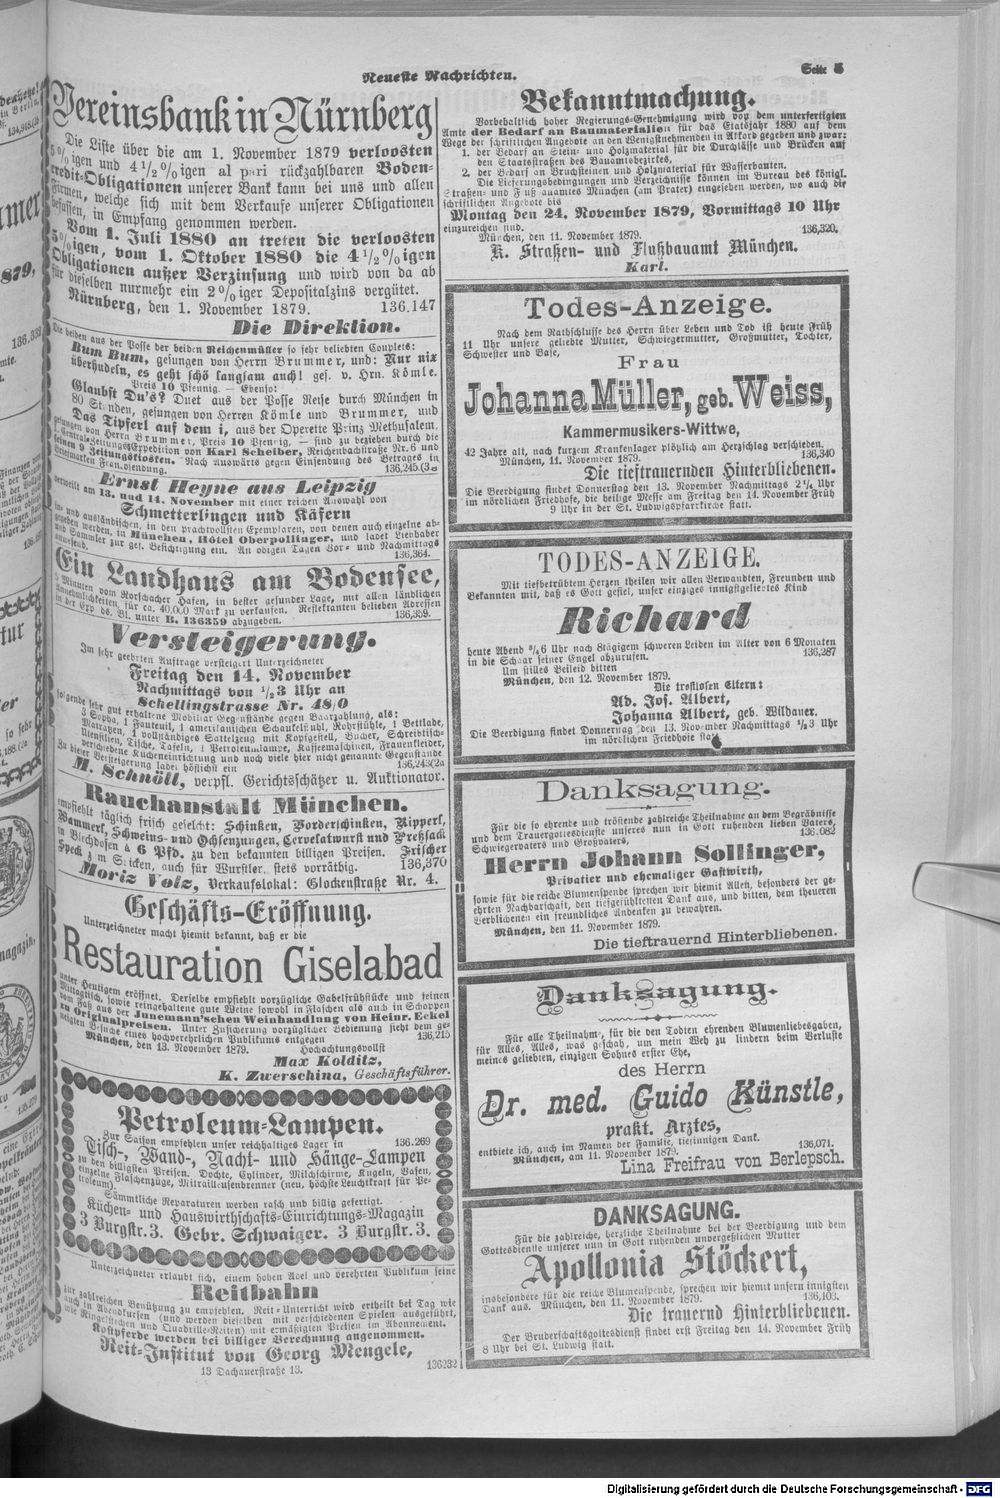 Neueste Nachrichten.
Seite 5
Vereinsbank in Nürnberg
Die Liste über die am 1. November 1879 verloosten
5%igen und 4 1/2%igen al pari rückzahlbaren Boden-
credit-Obligationen unserer Bank kann bei uns und allen
Firmen, welche sich mit dem Verkaufe unserer Obligationen
befassen, in Empfang genommen werden.
Vom 1. Juli 1880 an treten die verloosten
5%igen, vom 1. Oktober 1880 die 4 1/2%igen
Obligationen außer Verzinsung und wird von da ab
für dieselben nurmehr ein 2%iger Depositalzins vergütet.
Nürnberg, den 1. November 1879. 136.147
Die Direktion.
Die beiden aus der Posse der beiden Reichenmüller so sehr beliebten Couplets:
Bum Bum, gesungen von Herrn Brummer, und: Nur nix
überhudeln, es geht schö langsam auch! ges. v. Hrn. Kömle.
Preis 10 Pfennig. — Ebenso:
Glaubst Du's? Duet aus der Posse Reise durch München in
80 Stunden, gesungen von Herren Kömle und Brummer, und
Das Tipferl auf dem i, aus der Operette Prinz Methusalem,
gesungen von Herrn Brummer, Preis 10 Pfennig, — sind zu beziehen durch die
Central-Zeitungs-Expedition von Karl Scheiber, Reichenbachstraße Nr. 6 und
seinen 9 Zeitungskiosken. Nach Auswärts gegen Einsendung des Betrages in
Briefmarken Francozusendung. 136,245.(3a
Ernst Heyne aus Leipzig
verweilt am 13. und 14. November mit einer reichen Auswahl von
Schmetterlingen und Käfern
in- und ausländischen, in den prachtvollsten Exemplaren, von denen auch einzelne ab-
gegeben werden, in München, Hôtel Oberpollinger, und ladet Liebhaber
und Sammler zur gef. Besichtigung ein. An obigen Tagen Vor- und Nachmittags
anwesend. 136,364.
Ein Landhaus am Bodensee,
5 Minuten vom Rorschacher Hafen, in bester gesunder Lage, mit allen ländlichen
Annehmlichkeiten, für ca. 40,000 Mark zu verkaufen. Reflektanten belieben Adressen
in der Exp. ds. Bl. unter B. 136359 abzugeben. 136,359.
Versteigerung.
Im sehr geehrten Auftrage versteigert Unterzeichneter
Freitag den 14. November
Nachmittags von 1/2 3 Uhr an
Schellingstrasse Nr. 48/0
folgende sehr gut erhaltene Mobiliar-Gegenstände gegen Baarzahlung, als:
3 Sopha, 1 Fauteuil, 1 amerikanischen Schaukelstuhl, Rohrstühle, 1 Bettlade,
Matratzen, 1 vollständiges Sattelzeug mit Kopfgestell, Bücher, Schreibtisch-
Utensilien, Tische, Tafeln, 1 Petroleumlampe, Kaffeemaschinen, Frauenkleider,
verschiedene Kücheneinrichtung und noch viele hier nicht genannte Gegenstände.
Zu dieser Versteigerung ladet höflichst ein 136,243(2a
M. Schnöll, verpfl. Gerichtsschätzer u. Auktionator.
Rauchanstalt München.
empfiehlt täglich frisch geselcht: Schinken, Vorderschinken, Ripperl,
Wammerl, Schweins- und Ochsenzungen, Cervelatwurst und Preßsack
in Blechdosen à 6 Pfd. zu den bekannten billigen Preisen. Frischer
Speck zum Spicken, auch für Wurstler, stets vorräthig. 136,370
Moriz Volz, Verkaufslokal: Glockenstraße Nr. 4.
Geschäfts-Eröffnung.
Unterzeichneter macht hiemit bekannt, daß er die
Restauration Giselabad
unter Heutigem eröffnet. Derselbe empfiehlt vorzügliche Gabelfrühstücke und feinen
Mittagtisch, sowie reingehaltene gute Weine sowohl in Flaschen als auch in Schoppen
vom Faß aus der Junemann'schen Weinhandlung von Heinr. Eckel
zu Originalpreisen. Unter Zusicherung vorzüglicher Bedienung sieht dem ge-
neigten Besuche eines hochverehrlichen Publikums entgegen 136,215
München, den 13. November 1879. Hochachtungsvollst
Max Kolditz,
K. Zwerschina, Geschäftsführer.
Petroleum-Lampen.
Zur Saison empfehlen unser reichhaltiges Lager in 136.269
Tisch-, Wand-, Nacht- und Hänge-Lampen
zu den billigsten Preisen. Dochte, Cylinder, Milchschirme, Kugeln, Vasen,
einzelne Flaschenzüge, Mitrailleusenbrenner (neu, höchste Leuchtkraft für Pe-
troleum).
Sämmtliche Reparaturen werden rasch und billig gefertigt.
Küchen- und Hauswirthschafts-Einrichtungs-Magazin
3 Burgstr. 3. Gebr. Schwaiger. 3 Burgstr. 3.
Unterzeichneter erlaubt sich, einem hohen Adel und verehrten Publikum seine
Reitbahn
zur zahlreichen Benützung zu empfehlen. Reit-Unterricht wird ertheilt bei Tag wie
auch in Abendkursen (und werden dieselben mit verschiedenen Spielen ausgeführt,
wie Ringelstechen und Quadrille-Reiten) mit ermäßigten Preisen im Abonnement.
Kostpferde werden bei billiger Berechnung angenommen.
Reit-Institut von Georg Mengele,
13 Dachauerstraße 13. 136232
Bekanntmachung.
Vorbehaltlich hoher Regierungs-Genehmigung wird von dem unterfertigten
Amte der Bedarf an Baumaterialien für das Etatsjahr 1880 auf dem
Wege der schriftlichen Angebote an den Wenigstnehmenden in Akkord gegeben und zwar:
1. der Bedarf an Stein- und Holzmaterial für die Durchlässe und Brücken auf
den Staatsstraßen des Bauamtsbezirkes,
2. der Bedarf an Bruchsteinen und Holzmaterial für Wasserbauten.
Die Lieferungsbedingungen und Verzeichnisse können im Bureau des königl.
Straßen- und Flußbauamtes München (am Prater) eingesehen werden, wo auch die
schriftlichen Angebote bis
Montag den 24. November 1879, Vormittags 10 Uhr
einzureichen sind. 136,320.
München, den 11. November 1879.
K. Straßen- und Flußbauamt München.
Karl.
Todes-Anzeige.
Nach dem Rathschlusse des Herrn über Leben und Tod ist heute Früh
11 Uhr unsere geliebte Mutter, Schwiegermutter, Großmutter, Tochter,
Schwester und Base,
Frau
Johanna Müller, geb. Weiss,
Kammermusikers-Wittwe,
42 Jahre alt, nach kurzem Krankenlager plötzlich am Herzschlag verschieden.
München, 11. November 1879. 136,340
Die tieftrauernden Hinterbliebenen.
Die Beerdigung findet Donnerstag den 13. November Nachmittags 2 1/4 Uhr
im nördlichen Friedhofe, die heilige Messe am Freitag den 14. November Früh
9 Uhr in der St. Ludwigspfarrkirche statt.
TODES-ANZEIGE.
Mit tiefbetrübtem Herzen theilen wir allen Verwandten, Freunden und
Bekannten mit, daß es Gott gefiel, unser einziges innigstgeliebtes Kind
Richard
heute Abend 3/4 6 Uhr nach 8tägigem schweren Leiden im Alter von 6 Monaten
in die Schaar seiner Engel abzurufen. 136,287
Um stilles Beileid bitten
München, den 12. November 1879.
Die trostlosen Eltern:
Ad. Jos. Albert,
Johanna Albert, geb. Wildauer.
Die Beerdigung findet Donnerstag den 13. November Nachmittags 1/2 3 Uhr
im nördlichen Friedhofe statt.
Danksagung.
Für die so ehrende und tröstende zahlreiche Theilnahme an dem Begräbnisse
und dem Trauergottesdienste unseres nun in Gott ruhenden lieben Vaters,
Schwiegervaters und Großvaters, 136.082
Herrn Johann Sollinger,
Privatier und ehemaliger Gastwirth,
sowie für die reiche Blumenspende sprechen wir hiemit Allen, besonders der ge-
ehrten Nachbarschaft, den tiefgefühltesten Dank aus, und bitten, dem theueren
Verblichenen ein freundliches Andenken zu bewahren.
München, den 11. November 1879.
Die tieftrauernd Hinterbliebenen.
Danksagung.
Für alle Theilnahme, für die den Todten ehrenden Blumenliebesgaben,
für Alles, Alles, was geschah, um mein Weh zu lindern beim Verluste
meines geliebten, einzigen Sohnes erster Ehe,
des Herrn
Dr. med. Guido Künstle,
prakt. Arztes,
entbiete ich, auch im Namen der Familie, tiefinnigen Dank. 136,071.
München, am 11. November 1879.
Lina Freifrau von Berlepsch.
DANKSAGUNG.
Für die zahlreiche, herzliche Theilnahme bei der Beerdigung und dem
Gottesdienste unserer nun in Gott ruhenden unvergeßlichen Mutter
Apollonia Stöckert,
insbesondere für die reiche Blumenspende, sprechen wir hiemit unsern innigsten
Dank aus. München, den 11. November 1879. 136,103.
Die trauernd Hinterbliebenen.
Der Bruderschaftsgottesdienst findet erst Freitag den 14. November Früh
8 Uhr bei St. Ludwig statt.
Digitalisierung gefördert durch die Deutsche Forschungsgemeinschaft - DFG